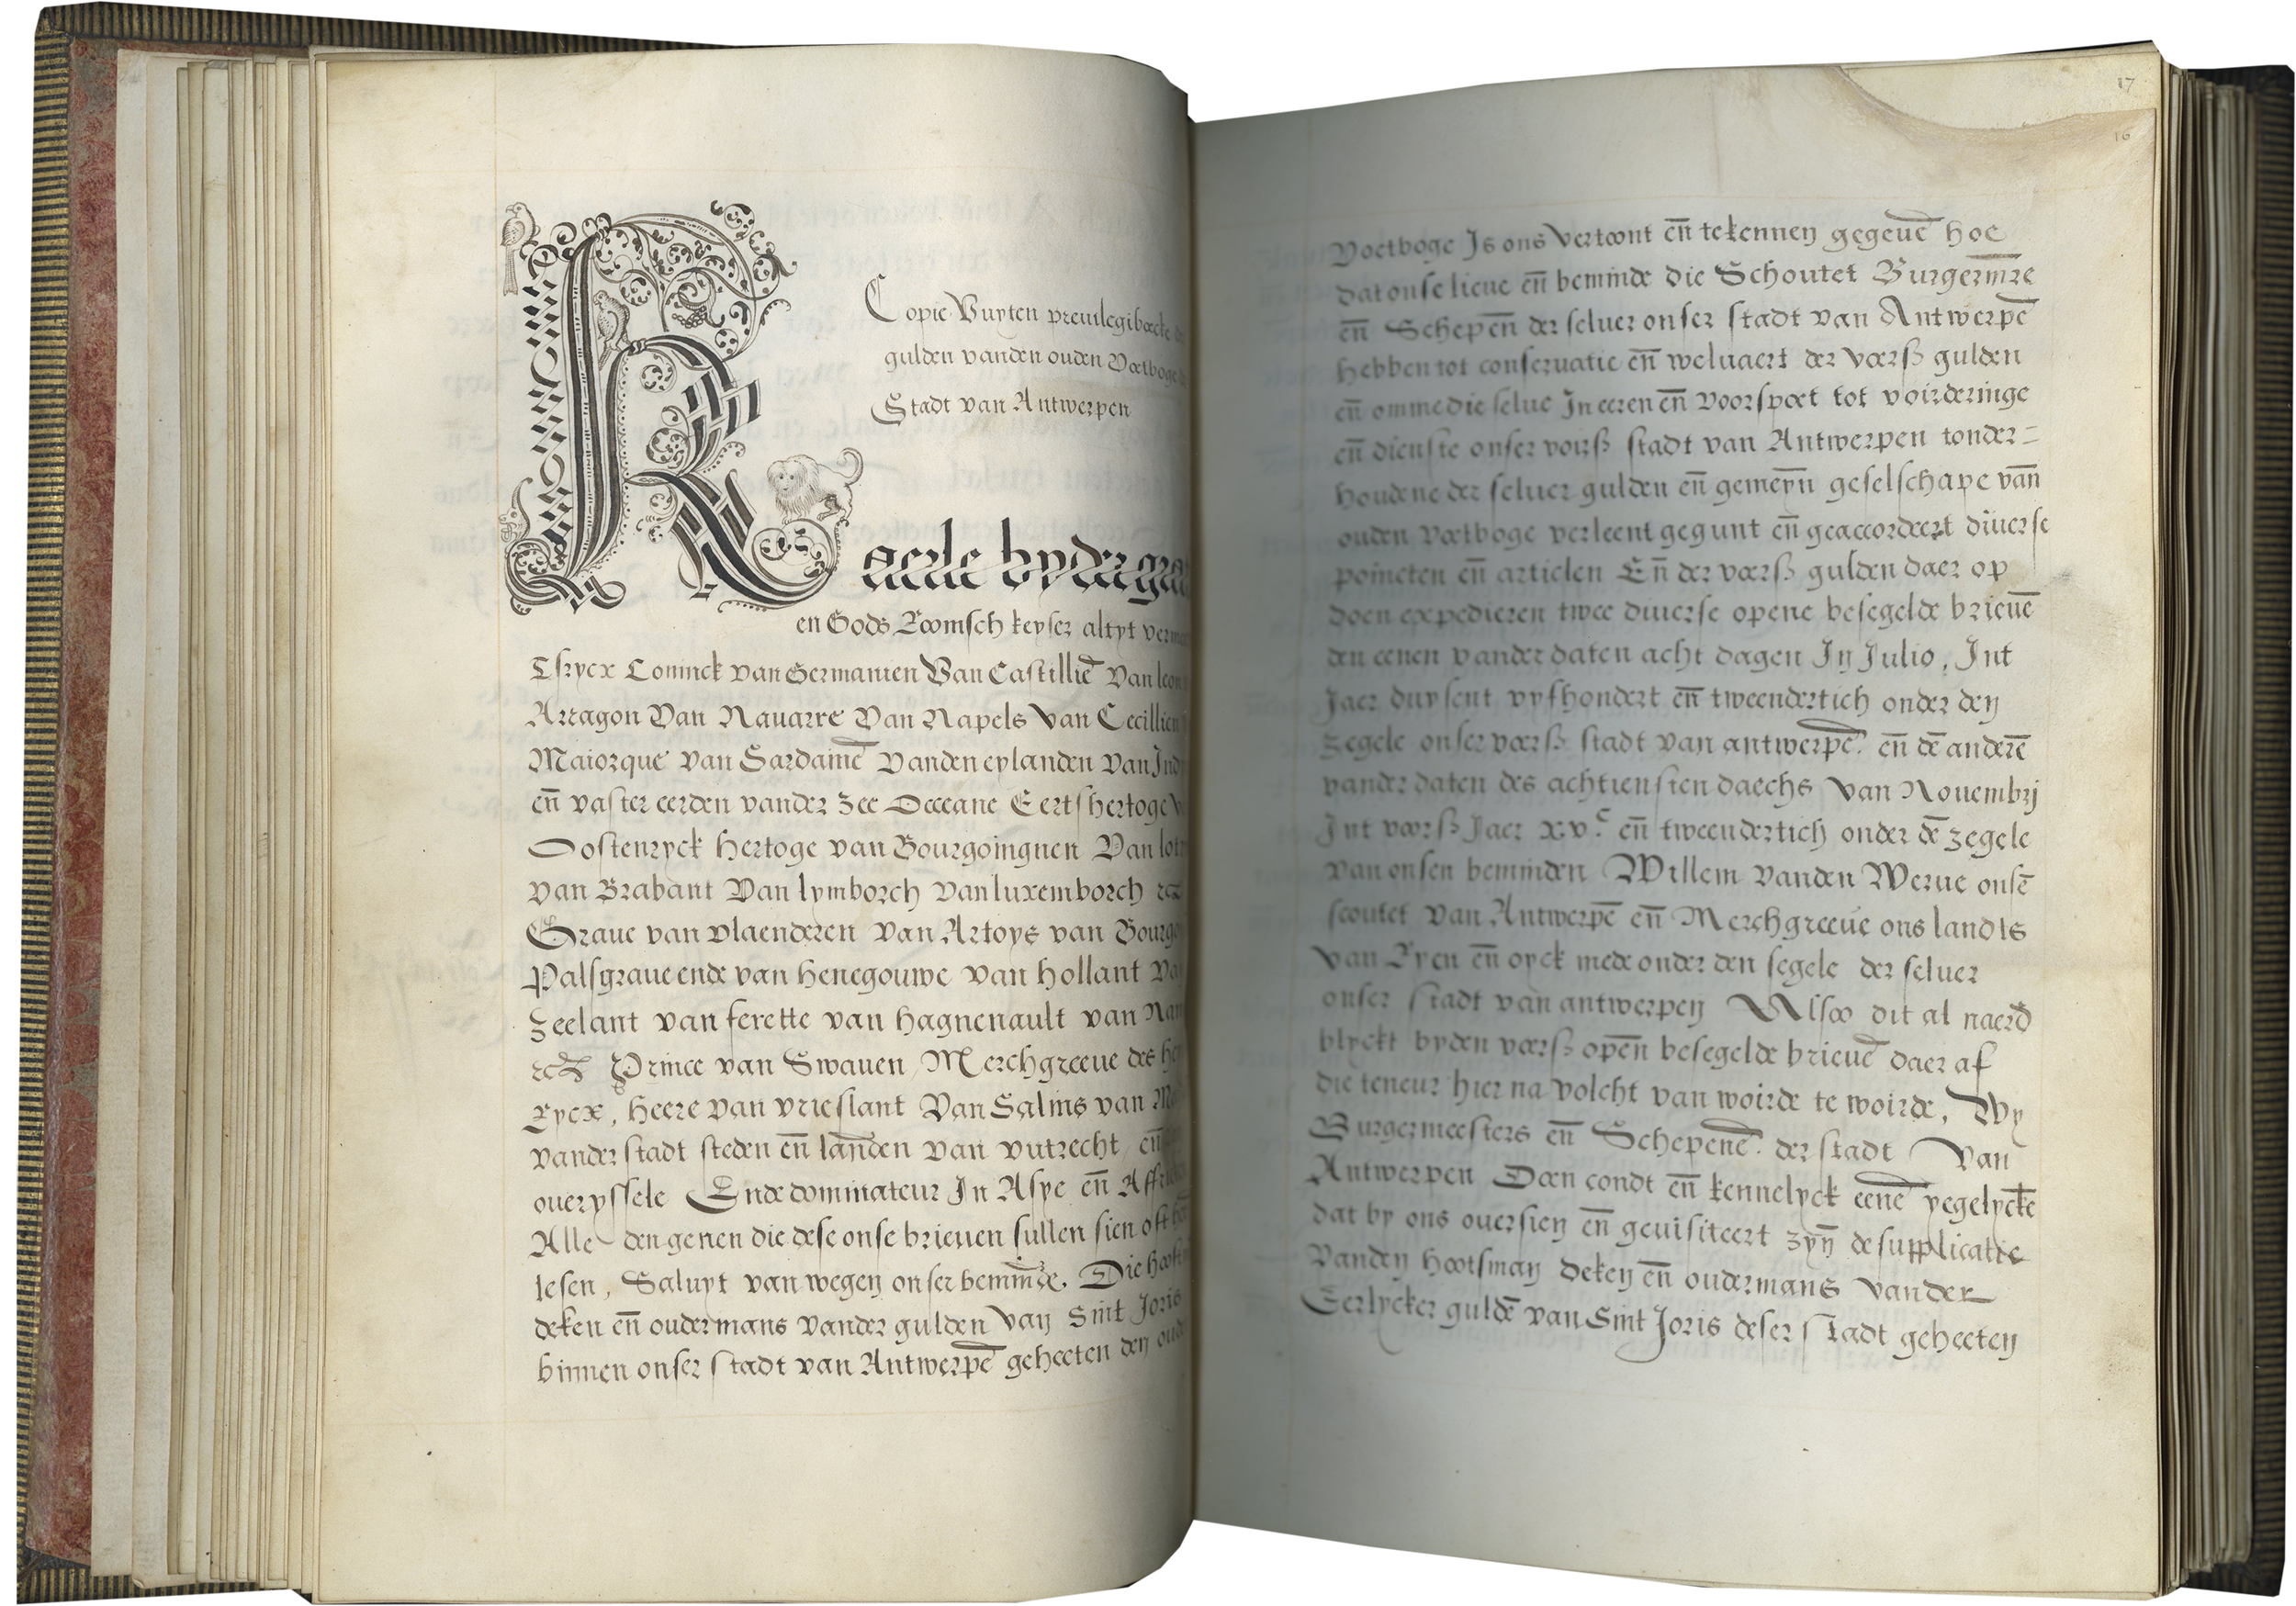 Copie Vuyten preuilegiboecke
gulden vanden ouden Voetboge
Stadt van Antwerpen
Kaerle by der gra
en Gods Roomsch keyser altyt verm
Tsrycx Coninck van Germanien Van Castillie͞ Van leon
Arragon Van Nauarre Van Napels Van Cecillien
Maiorque Van Sardaine͞ Vanden eylanden Van Ind
en͞ vaster eerden vander zee Occeane Eertshertoge
Oostenryck hertoge van Bourgoingnen Van lot
van Brabant Van lymborch Van luxemborch
Graue van vlaenderen Van Artoys van Bourgo
Palsgraue ende van henegouwe van hollant Va
zeelant van ferette van hagnenault van Nam
Prince van Swauen, Merchgreeue des he
Rycx, heere van vrieslant Van Salins van M
vander stadt steden en͞ landen van vutrecht, en͞
oueryssele Ende dominateur In Asye en͞ Affri
Alle den genen die dese onse brieuen sullen sien oft
lesen, Saluyt van wegen onser beminde. Die hoofs
deken en͞ oudermans vander gulden Van Sint Joris
binnen onser stadt van Antwerpe͞ geheeten den oud
17
16
Voetboge Is ons vertoont en͞ te kennen gegeue͞ hoe
dat onse lieue en͞ beminde die Schoutet Burgerm͞re
en͞ Schepen͞ der seluer onser stadt van Antwerpe͞
hebben tot conseruatie en͞ weluaert der voerß gulden
en͞ omme die selue In eeren en͞ voorspoet tot voirderinge
en͞ dienste onser voirß stadt van Antwerpen tonder=
houdene der seluer gulden en͞ gemeyn͞ geselschape van͞
ouden voetboge verleent gegunt en͞ geaccordeert diuerse
poincten en͞ articlen En͞ der voerß gulden daer op
doen expedieren twee diuerse opene besegelde brieue͞
den eenen vander daten acht dagen In Julio, Int
Jaer duysent vyfhondert en͞ tweendertich onder den
zegele onser voerß stadt van antwerpe͞. en͞ de͞ andere͞
vander daten des achtiensten daechs van Nouembrj
Int voerß Jaer xv.c en͞ tweendertich onder de͞ zegele
van onsen beminden Willem vanden Werue onse͞
scoutet van Antwerpe͞ en͞ Merchgreeue ons landts
van Ryen en͞ oyck mede onder den segele der seluer
onser stadt van antwerpen Alsoo dit al naerd
blyckt byden voerß open͞ besegelde brieue͞ daer af
die teneur hier na volcht van woirde te woirde, Wy
Burgermeesters en͞ Schepene͞. der stadt Van
Antwerpen Doen condt en͞ kennelyck eene͞ yegelycke͞
dat by ons ouersien en͞ geuisiteert zyn͞ de supplicatie
vanden hootsman deken en͞ oudermans vander
Eerlycker gulde͞ van Sint Joris deser stadt geheeten